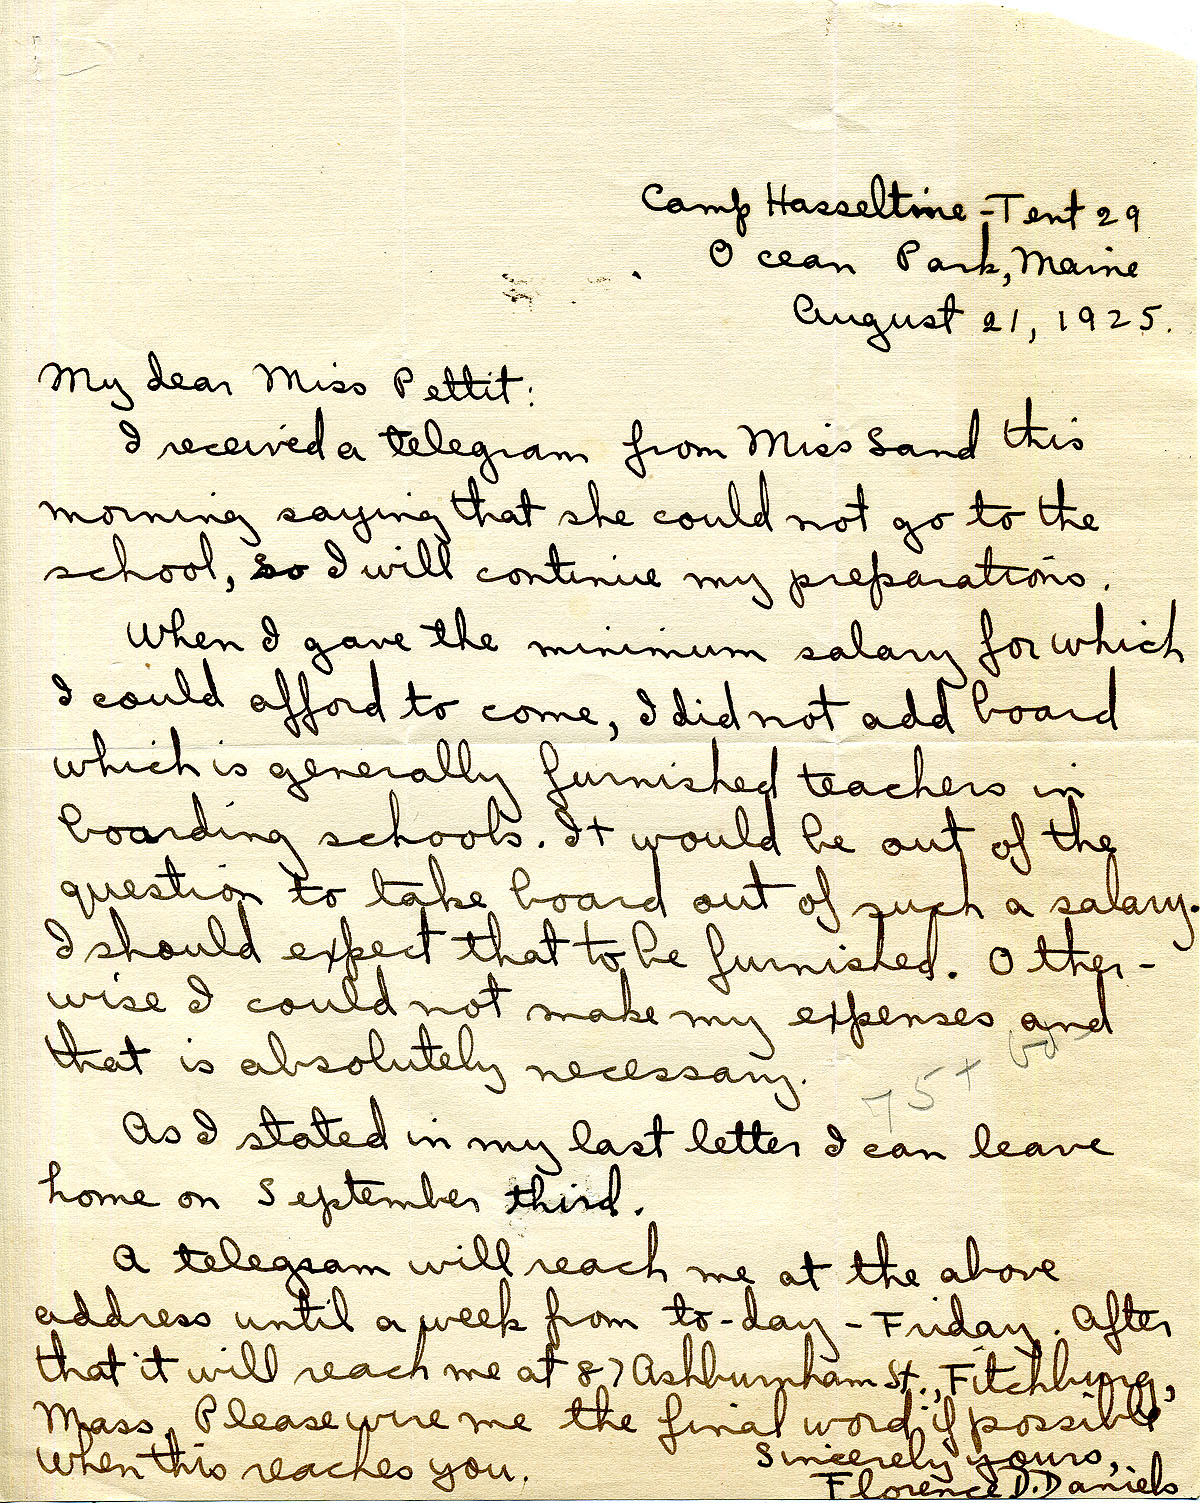 Camp Hasseltine - Tent 29
Ocean Park, Maine
August 21, 1925.
My dear Miss Pettit:
I received a telegram from Miss Sand this
morning saying that she could not go to the
school, so I will continue my preparations.
When I gave the minimum salary for which
I could afford to come, I did not add board
which is generally furnished teachers in
boarding schools. It would be out of the
question to take board out of such a salary.
I should expect that to be furnished. Other-
wise I could not make my expenses and
that is absolutely necessary.
75 +
As I stated in my last letter I can leave
home on September third.
A telegram will reach me at the above
address until a week from to-day - Friday. After
that it will reach me at 87 Ashburnham St., Fitchburg,
Mass. Please wire me the final word if possible
when this reaches you.
Sincerely yours,
Florence D. Daniels